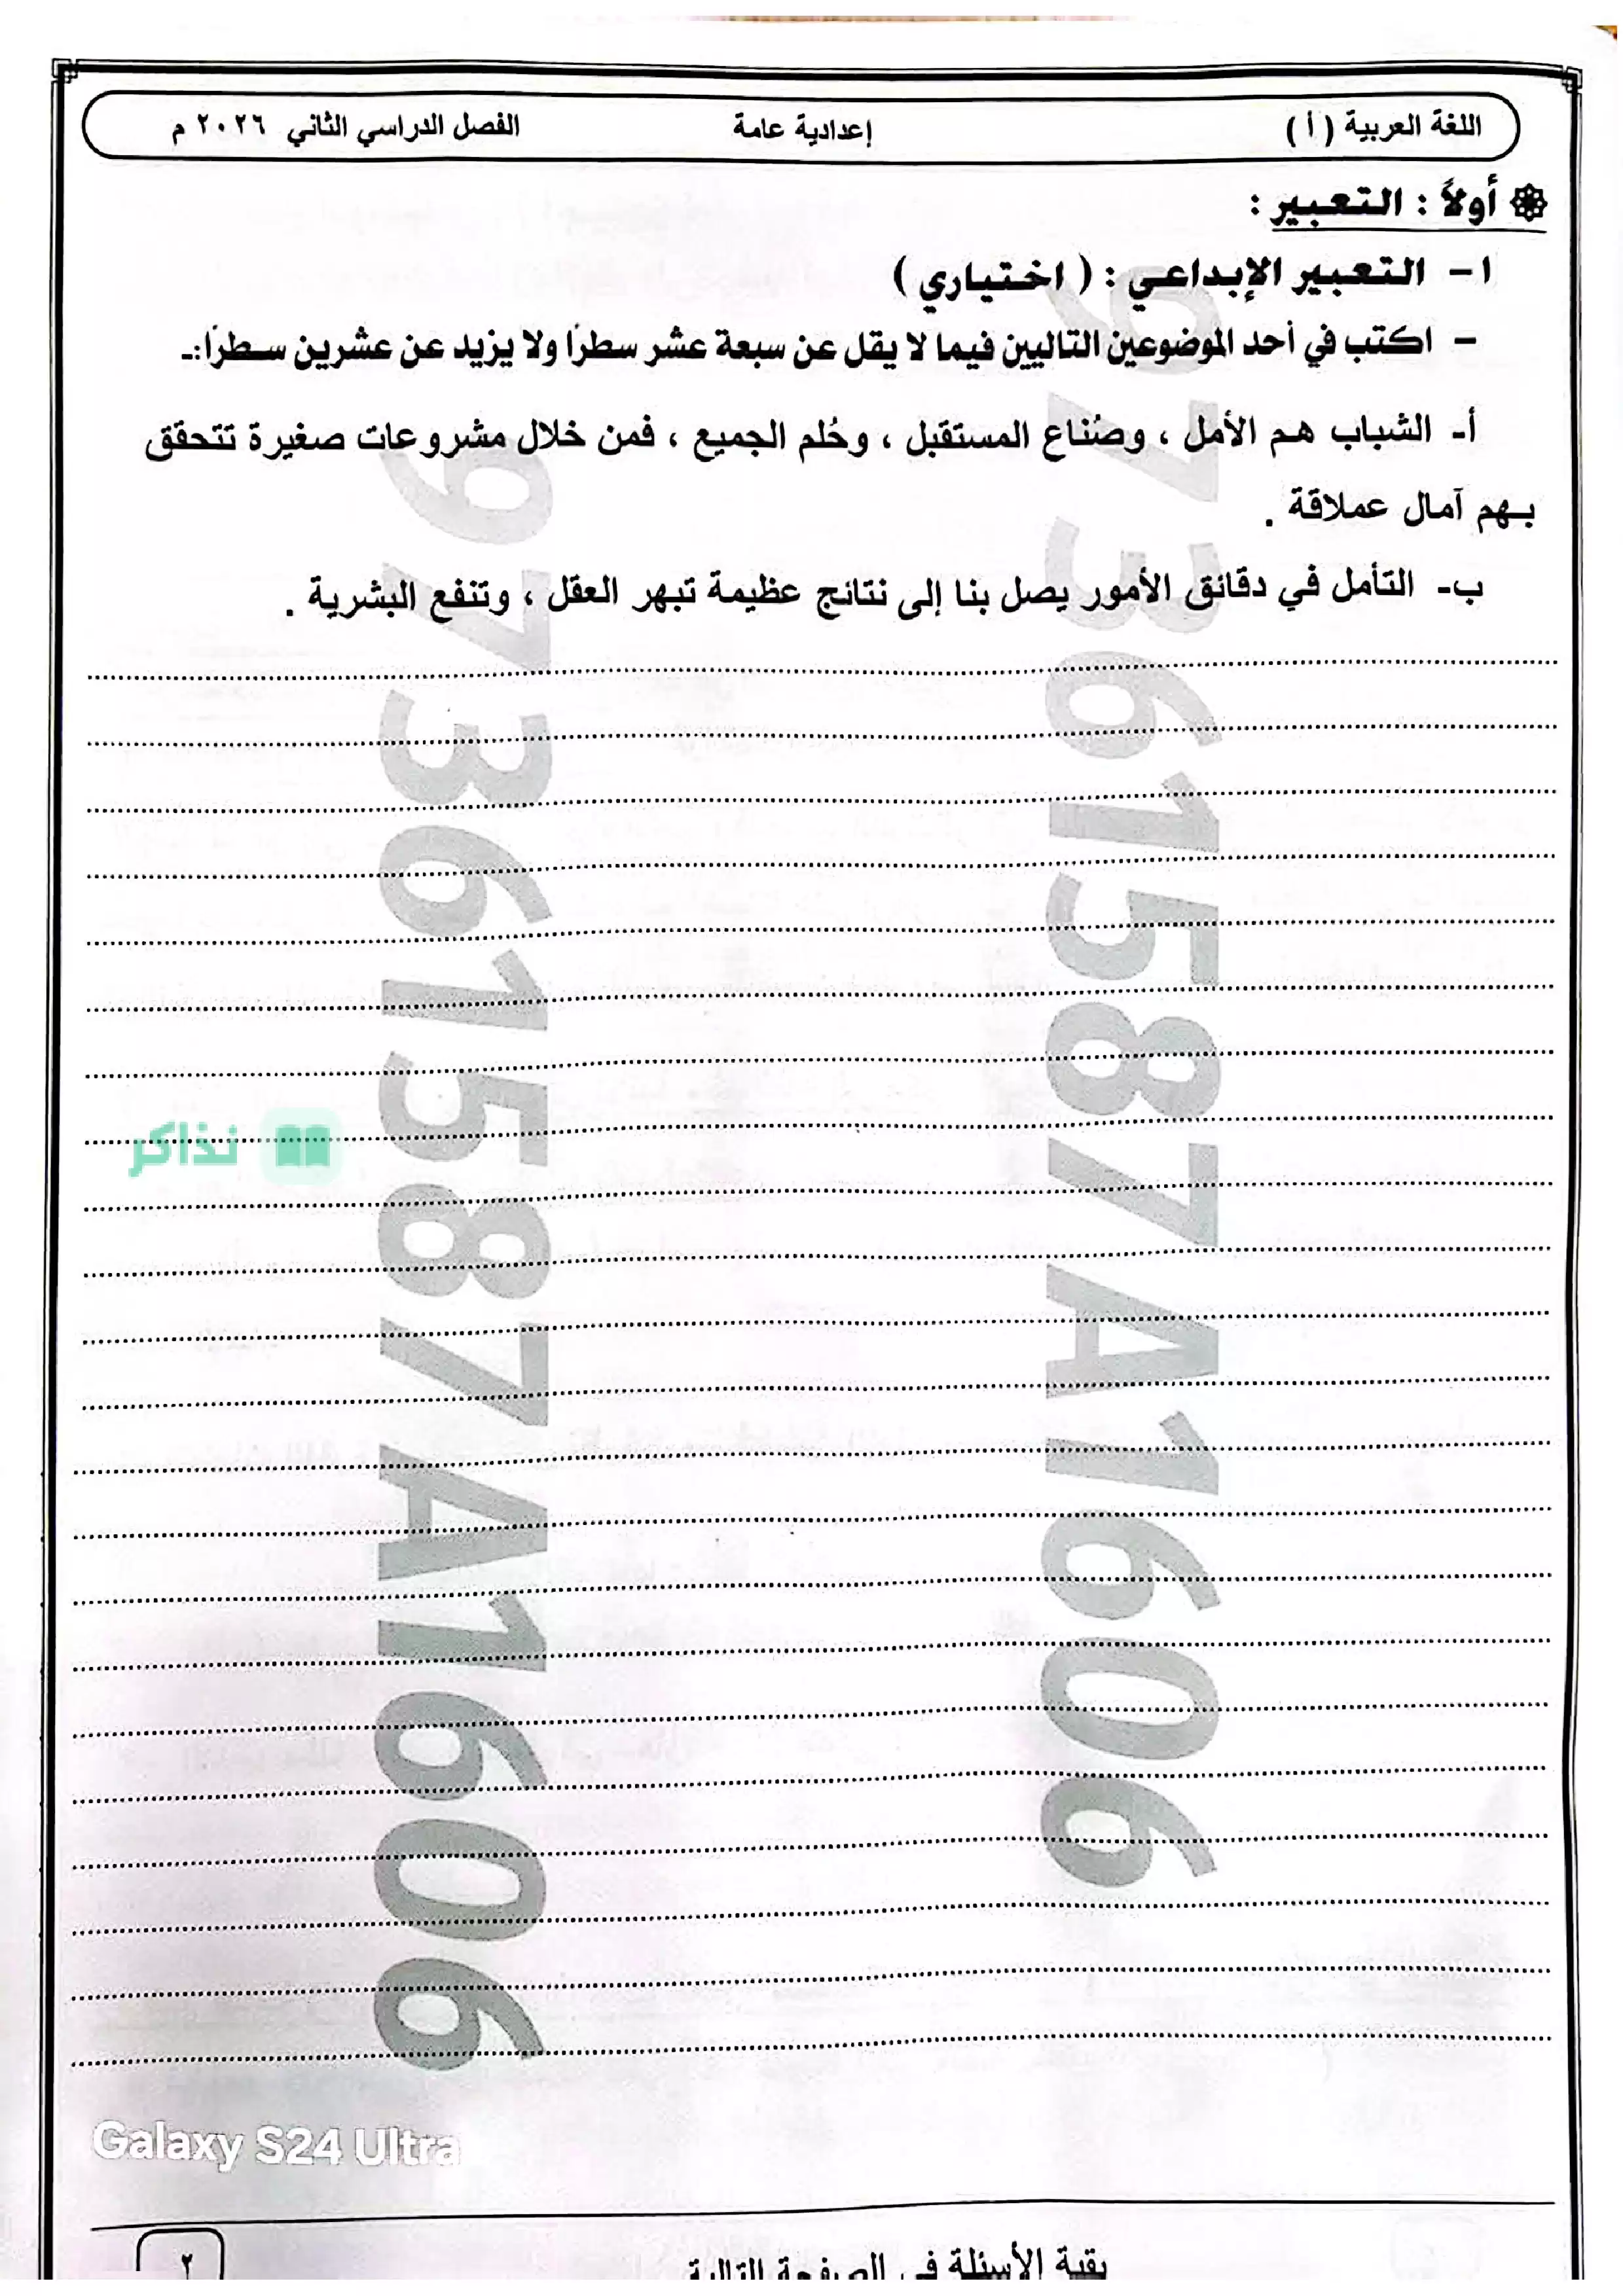 اللغة العربية ( أ ) إعدادية عامة الفصل الدراسي الثاني ٢٠٢٦ م
أولاً : التعبير :
١ - التعبير الإبداعي : ( اختياري )
- اكتب في أحد الموضوعين التاليين فيما لا يقل عن سبعة عشر سطرًا ولا يزيد عن عشرين سطرًا:ـ
أ- الشباب هم الأمل ، وصُناع المستقبل ، وحُلم الجميع ، فمن خلال مشروعات صغيرة تتحقق
بهم آمال عملاقة .
ب- التأمل في دقائق الأمور يصل بنا إلى نتائج عظيمة تبهر العقل ، وتنفع البشرية .
97361587A1606
97361587A1606
نذاكر
Galaxy S24 Ultra
بقية الأسئلة في الصفحة التالية
٢